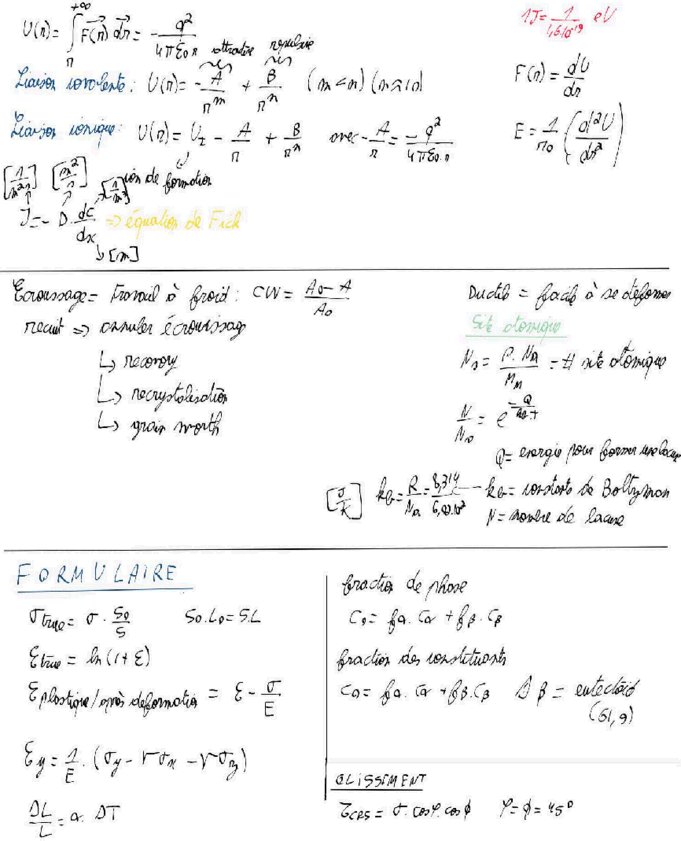 U(r) = ∫_r^{+∞} F(r) dr = - q²/(4πε₀r)
attractive répulsive
Liaison covalente : U(r) = - A/r^m + B/r^n (m<n) (n≈10)
Liaison ionique : U(r) = U_i - A/r + B/r^n avec - A/r = - q²/(4πε₀r)
ion de formation
1J = 1/(1,6.10^-19) eV
F(r) = dU/dr
E = 1/r₀ (d²U/dr²)
[m²/s] [1/m³]
J = - D . dC/dx => équation de Fick
↳ [m]
Ecrouissage = Travail à froid : CW = (A₀ - A)/A₀
recuit => annuler écrouissage
↳ recovery
↳ recrystalisation
↳ grain
Ductile = facile à se déformer
Site atomique
N_s = ρ.N_A/M_M = # site atomique
Q = energie pour former une lacune
[J/K] k_B = R/N_A = 8,314 k_B = constante de Boltzmann
N = nombre de lacune
FORMULAIRE
σ_true = σ . S₀/S S₀.L₀ = S.L
ε_true = ln(1+ε)
ε plastique/après déformation = ε - σ/E
ε_y = 1/E . (σ_y - νσ_x - νσ_z)
ΔL/L = α . ΔT
fraction de phase
C₀ = fα . Cα + fβ . Cβ
fraction des constituants
C₀ = fα . Cα + fβ . Cβ Δ β = eutectoid
(61,9)
GLISSEMENT
τ_CRS = σ . cosφ . cosϕ φ = ϕ = 45°